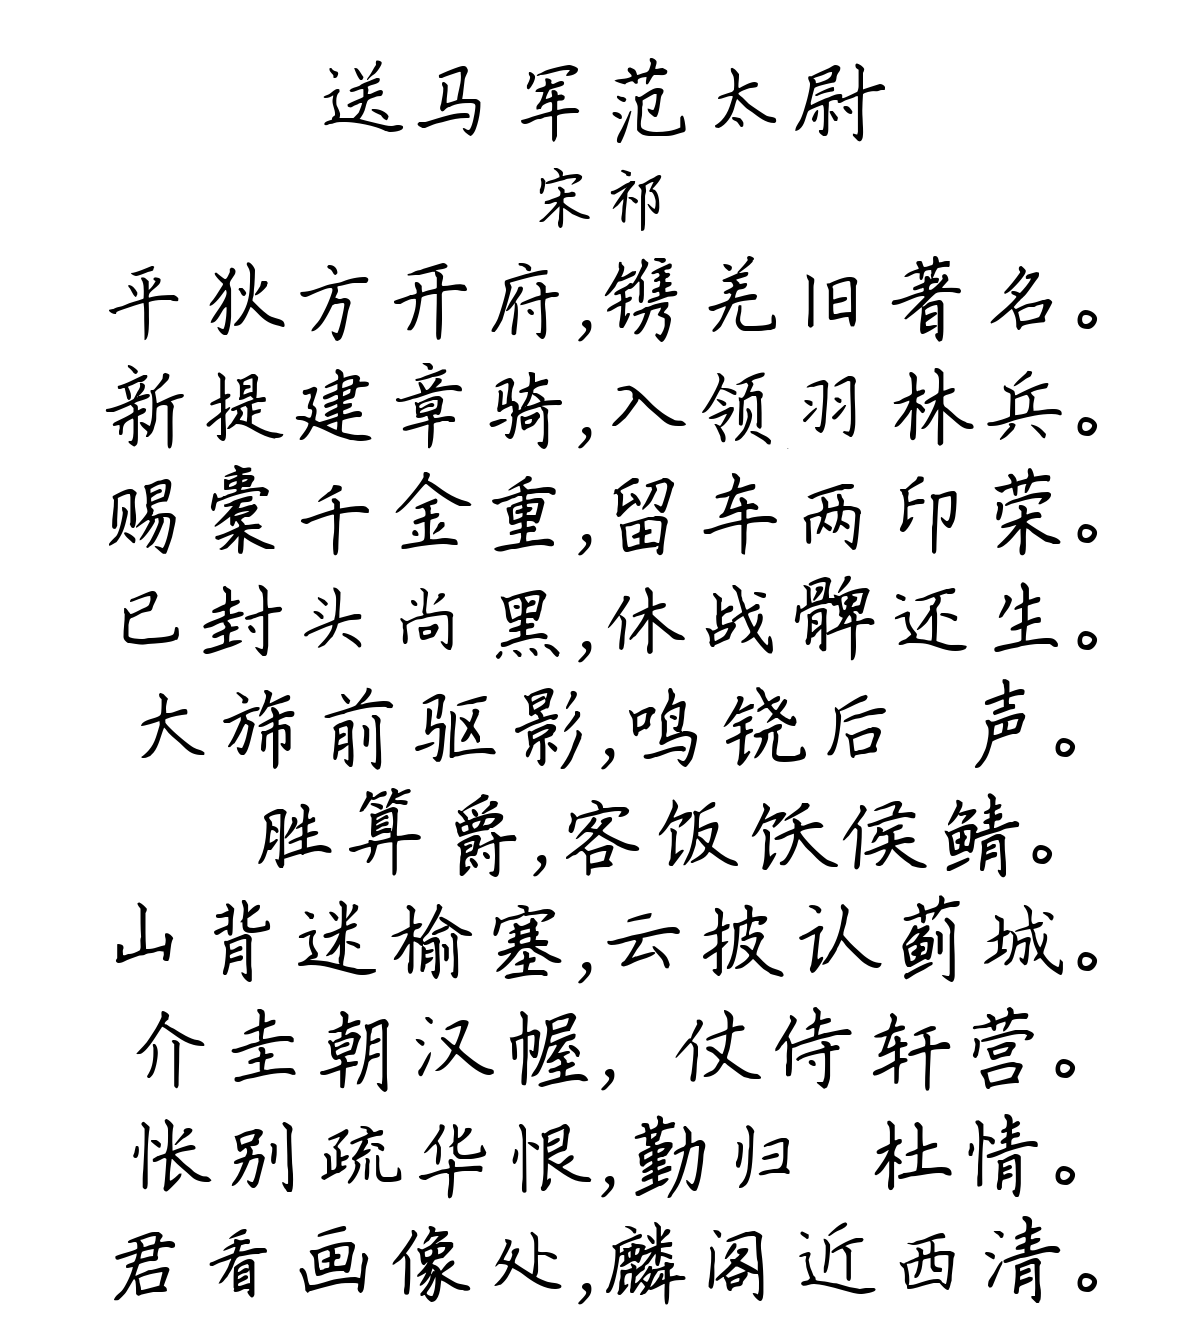 送马军范太尉
宋祁
平狄方开府,镌羌旧著名。
新提建章骑,入领羽林兵。
赐橐千金重,留车两印荣。
已封头尚黑,休战髀还生。
大旆前驱影,鸣铙后 声。
胜算爵,客饭饫侯鲭。
山背迷榆塞,云披认蓟城。
介圭朝汉幄, 仗侍轩营。
怅别疏华恨,勤归 杜情。
君看画像处,麟阁近西清。